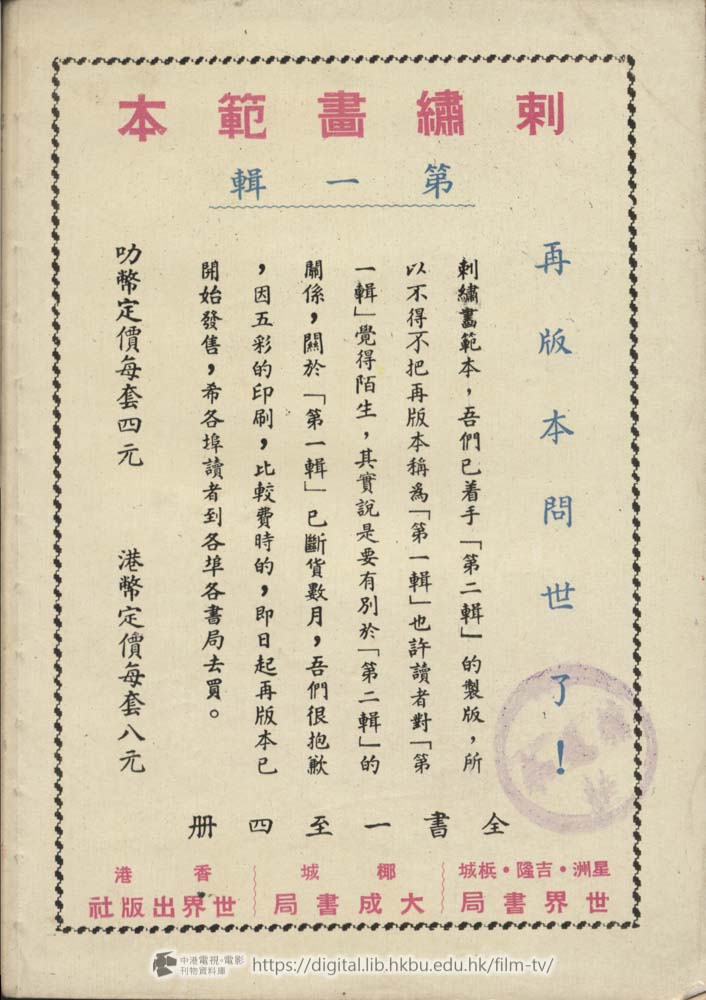 刺繡畫範本
第一輯
再版本問世了！
刺繡畫範本，吾們已着手「第二輯」的製版，所
以不得不把再版本稱為「第一輯」也許讀者對「第
一輯」覺得陌生，其實說是要有別於「第二輯」的
關係，關於「第一輯」已斷貨數月，吾們很抱歉
，因五彩的印刷，比較費時的，即日起再版本已
開始發售，希各埠讀者到各埠各書局去買。
叻幣定價每套四元 港幣定價每套八元
全書一至四册
星洲・吉隆・梹城
世界書局
椰城
大成書局
香港
世界出版社
中港電視・電影
刊物資料庫
https://digital.lib.hkbu.edu.hk/film-tv/